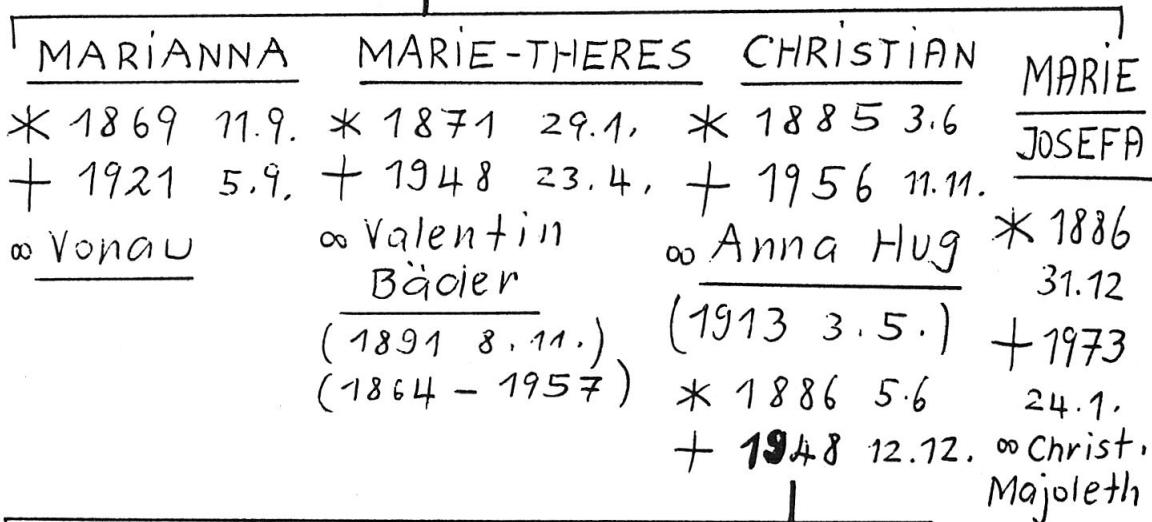 MARIANNA
* 1869 11.9.
+ 1921 5.9.
∞ Vonau
MARIE-THERES
* 1871 29.1.
+ 1948 23.4.
∞ Valentin
Bäder
(1891 8.11.)
(1864 - 1957)
CHRISTIAN
* 1885 3.6
+ 1956 11.11.
∞ Anna Hug
(1913 3.5.)
* 1886 5.6
+ 1948 12.12.
MARIE
JOSEFA
* 1886
31.12
+ 1973
24.1.
∞ Christ.
Majoleth